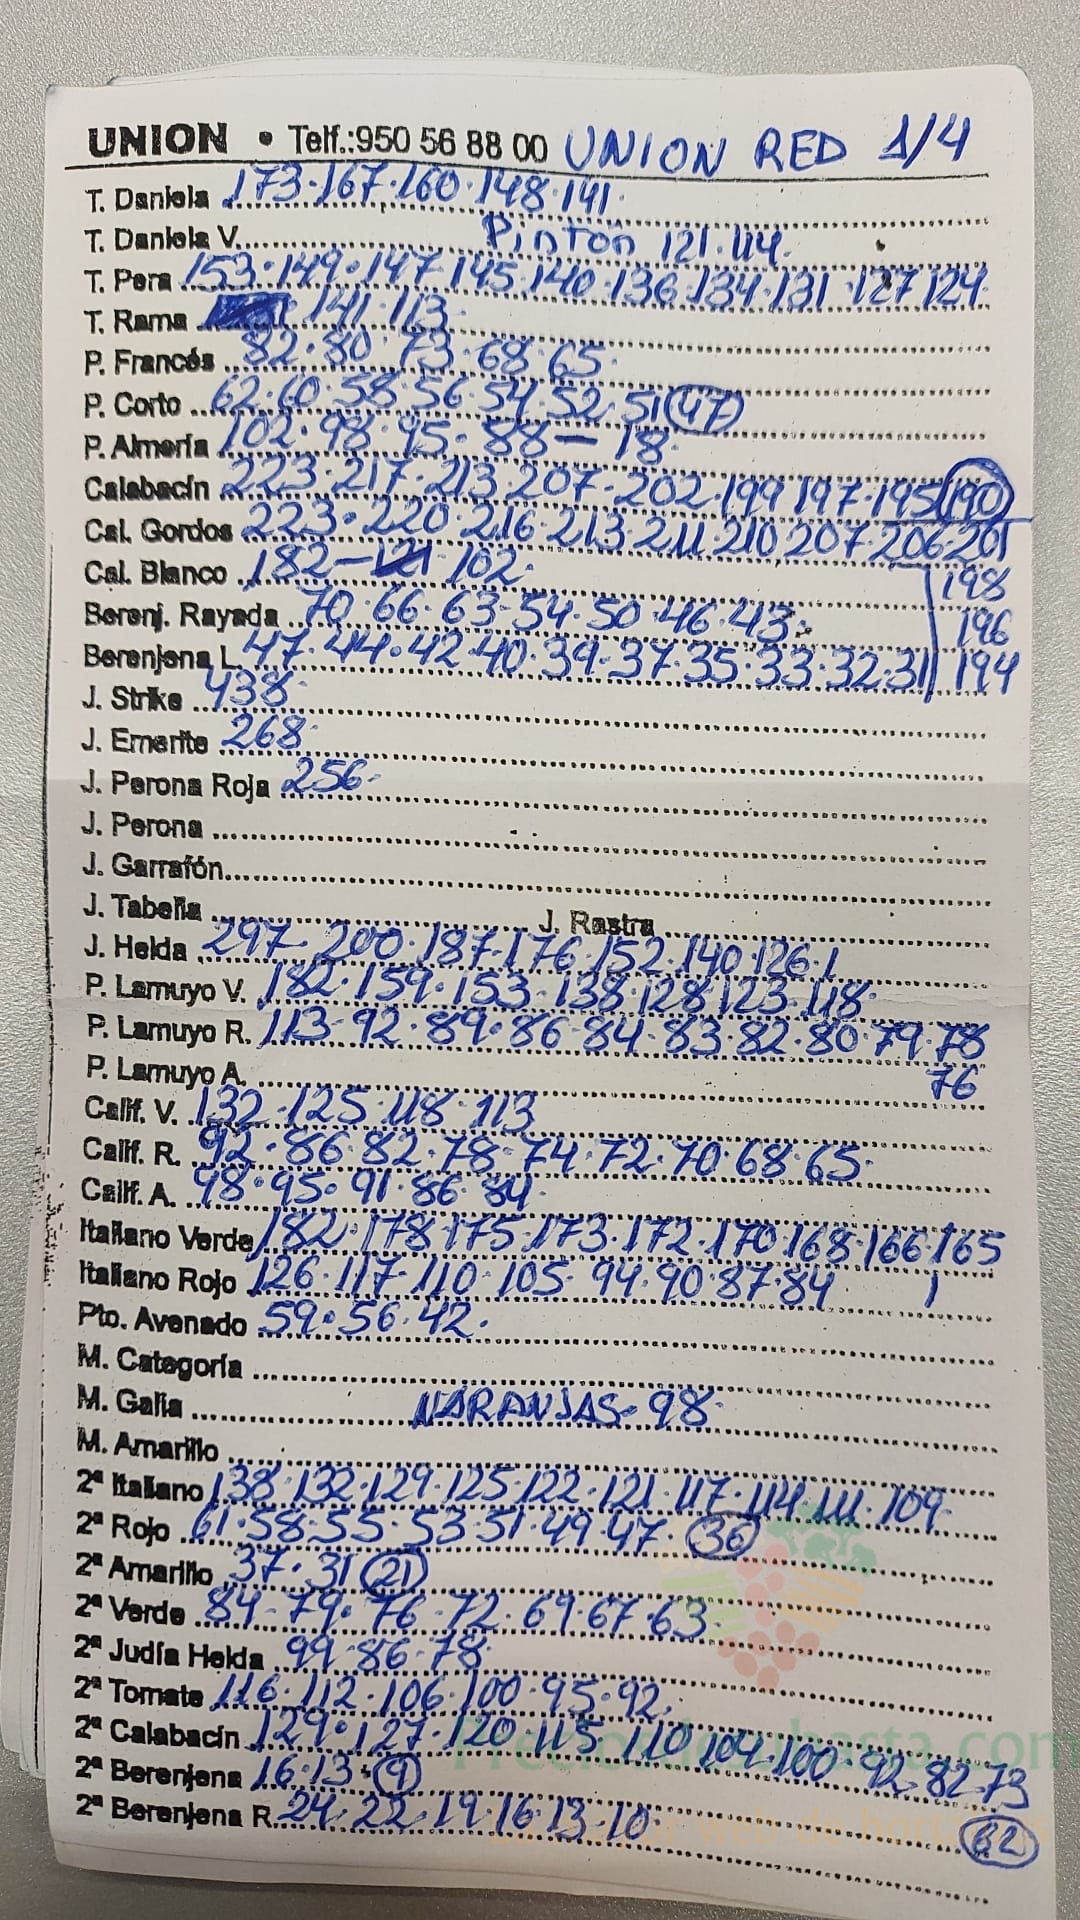 UNION • Telf.:950 56 88 00 UNION RED 1/4
T. Daniela 173·167·160·148·141·
T. Daniela V. Pinton 121·114·
T. Pera 153·149·147·145·140·136·134·131·127 124·
T. Rama 141·113·
P. Francés 82·80·73·68·65·
P. Corto 62·60·58·56·54·52·51 (47)
P. Almería 102·98·95·88—18·
Calabacín 223·217·213·207·202·199 197·195 (190)
Cal. Gordos 223·220·216·213·211·210 207·206·201
Cal. Blanco 182— 102· 198
Berenj. Rayada 70·66·63·54·50·46·43· 196
Berenjena L. 47·44·42·40·39·37·35·33·32·31 194
J. Strike 438·
J. Emerite 268·
J. Perona Roja 256·
J. Perona
J. Garrafón
J. Tabella J. Rastra
J. Helda 297·200·187·176·152·140·126·1
P. Lamuyo V. 182·159·153·138·128·123·118·
P. Lamuyo R. 113·92·89·86·84·83·82·80·79·78
P. Lamuyo A. 76
Calif. V. 132·125·118·113
Calif. R. 92·86·82·78·74·72·70·68·65·
Calif. A. 98·95·91·86·84·
Italiano Verde 182·178·175·173·172·170·168·166·165
Italiano Rojo 126·117·110·105·94·90·87·84 1
Pto. Avenado 59·56·42·
M. Categoría
M. Galia NARANJAS·98·
M. Amarillo
2ª Italiano 138·132·129·125·122·121·117·114·111·109·
2ª Rojo 61·58·55·53·51·49·47· (36)
2ª Amarillo 37·31 (21)
2ª Verde 84·79·76·72·69·67·63·
2ª Judía Helda 99·86·78·
2ª Tomate 116·112·106·100·95·92·
2ª Calabacín 129·127·120·115·110 104·100·92·82·73
2ª Berenjena 16·13· (9)
2ª Berenjena R. 24·22·19·16·13·10· (62)